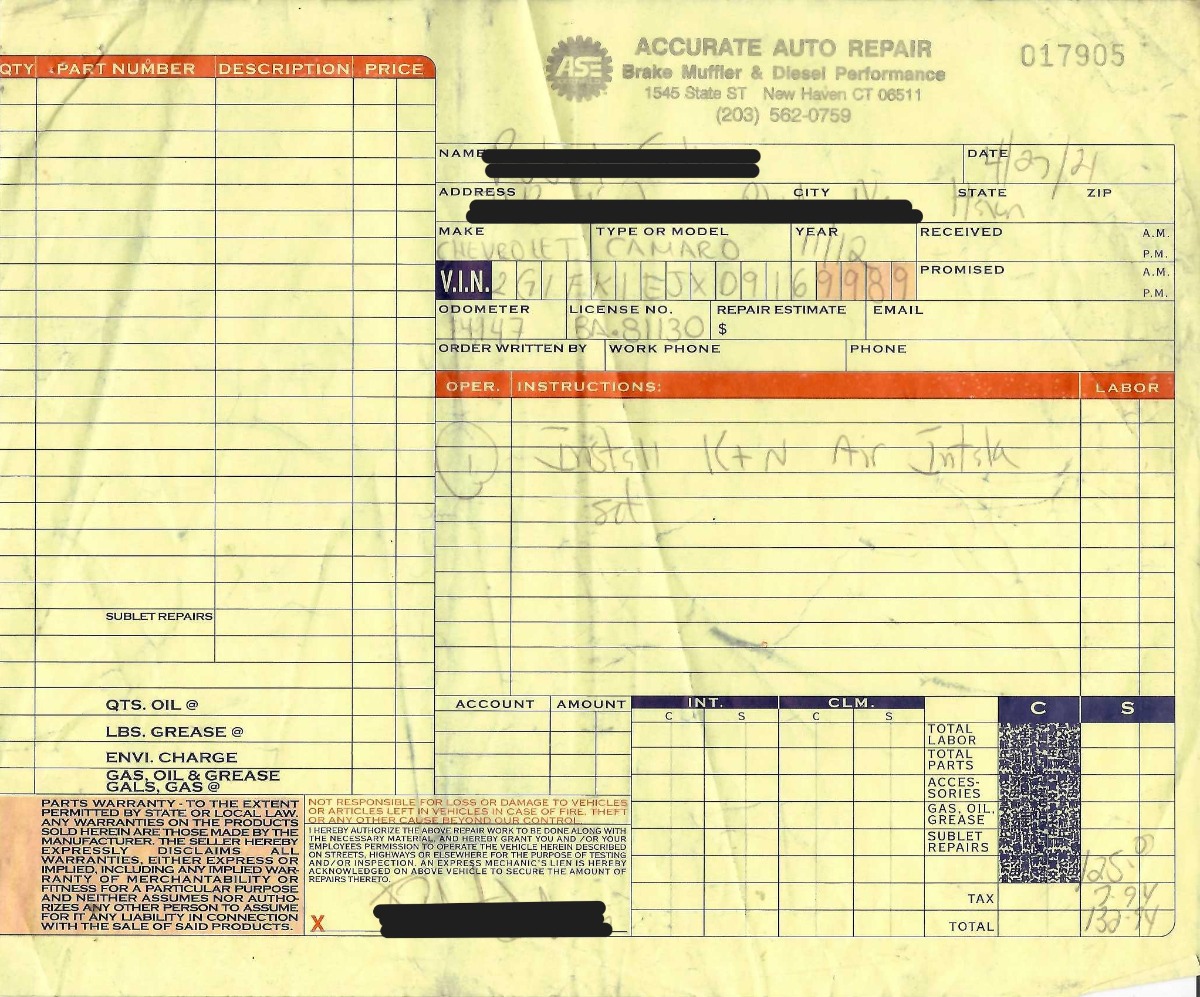 ASE
ACCURATE AUTO REPAIR
Brake Muffler & Diesel Performance
1545 State ST New Haven CT 06511
(203) 562-0759
017905
QTY PART NUMBER DESCRIPTION PRICE
SUBLET REPAIRS
QTS. OIL @
LBS. GREASE @
ENVI. CHARGE
GAS, OIL & GREASE
GALS, GAS @
NAME DATE 4/27/21
ADDRESS CITY STATE ZIP
MAKE TYPE OR MODEL YEAR RECEIVED A.M.
CHEVROLET CAMARO 11/12 P.M.
V.I.N. 2G1FK1EJXD9169989 PROMISED A.M.
P.M.
ODOMETER LICENSE NO. REPAIR ESTIMATE EMAIL
14147 BA·81130 $
ORDER WRITTEN BY WORK PHONE PHONE
OPER. INSTRUCTIONS: LABOR
1 Install K+N Air Intak
ACCOUNT AMOUNT INT. CLM. C S
C S C S
TOTAL
LABOR
TOTAL
PARTS
ACCES-
SORIES
GAS, OIL,
GREASE
SUBLET
REPAIRS
125.00
TAX 7.94
TOTAL 132.94
PARTS WARRANTY - TO THE EXTENT
PERMITTED BY STATE OR LOCAL LAW.
ANY WARRANTIES ON THE PRODUCTS
SOLD HEREIN ARE THOSE MADE BY THE
MANUFACTURER. THE SELLER HEREBY
EXPRESSLY DISCLAIMS ALL
WARRANTIES, EITHER EXPRESS OR
IMPLIED, INCLUDING ANY IMPLIED WAR-
RANTY OF MERCHANTABILITY OR
FITNESS FOR A PARTICULAR PURPOSE
AND NEITHER ASSUMES NOR AUTHO-
RIZES ANY OTHER PERSON TO ASSUME
FOR IT ANY LIABILITY IN CONNECTION
WITH THE SALE OF SAID PRODUCTS.
NOT RESPONSIBLE FOR LOSS OR DAMAGE TO VEHICLES
OR ARTICLES LEFT IN VEHICLES IN CASE OF FIRE, THEFT
OR ANY OTHER CAUSE BEYOND OUR CONTROL.
I HEREBY AUTHORIZE THE ABOVE REPAIR WORK TO BE DONE ALONG WITH
THE NECESSARY MATERIAL, AND HEREBY GRANT YOU AND /OR YOUR
EMPLOYEES PERMISSION TO OPERATE THE VEHICLE HEREIN DESCRIBED
ON STREETS, HIGHWAYS OR ELSEWHERE FOR THE PURPOSE OF TESTING
AND/OR INSPECTION. AN EXPRESS MECHANIC'S LIEN IS HEREBY
ACKNOWLEDGED ON ABOVE VEHICLE TO SECURE THE AMOUNT OF
REPAIRS THERETO.
X